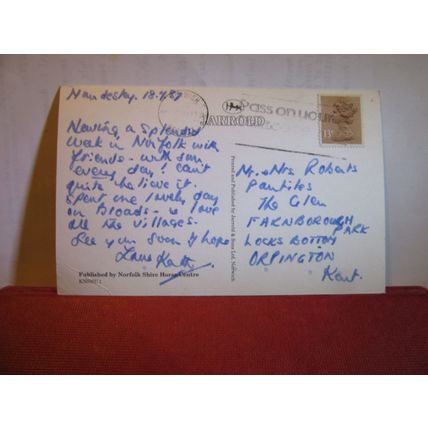 Mundesley. 18.9.87
Having a splendid
week in Norfolk with
friends - with sun
every day! Can't
quite believe it.
Spent one lovely day
on Broads - & love
all the villages.
See you soon I hope
Love Kath
Published by Norfolk Shire Horse Centre
Pass on your
JARROLD
Printed and Published by Jarrold & Sons Ltd, Norwich
13
Mr. & Mrs Roberts
The Glen
FARNBOROUGH
PARK
LOCKSBOTTOM
ORPINGTON
Kent.